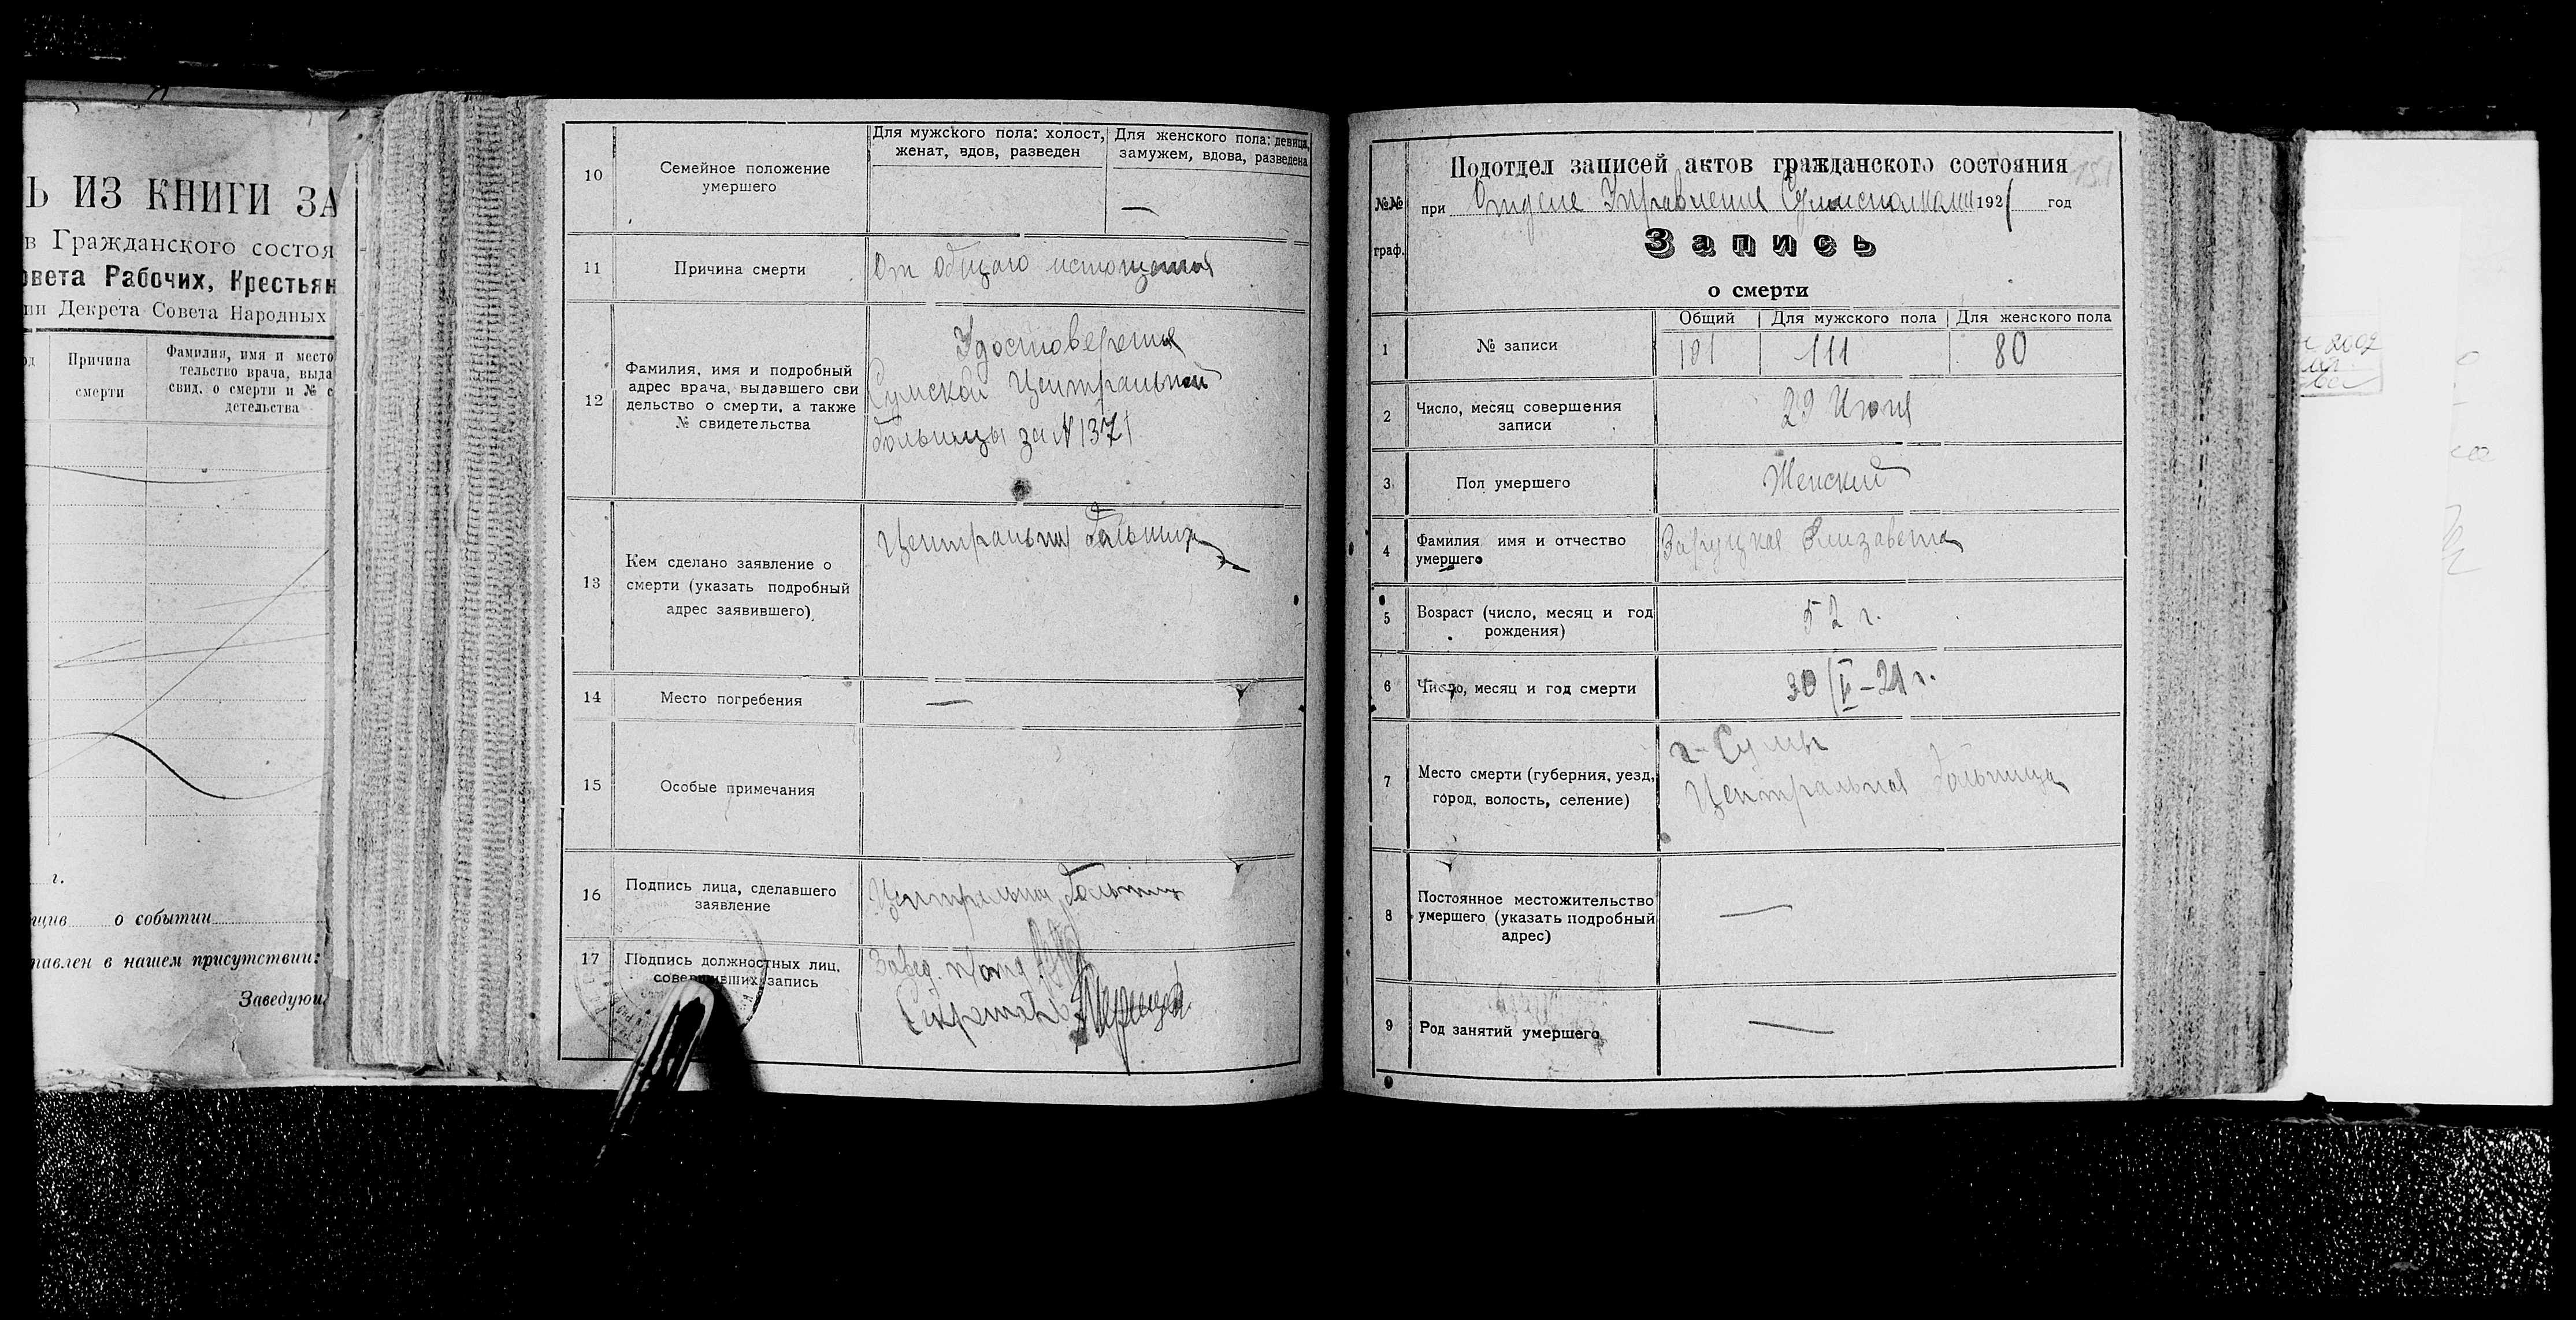 Ь ИЗ КНИГИ ЗА
в Гражданского состоя
овета Рабочих, Крестьян
ии Декрета Совета Народных
од
Причина
смерти
Фамилия, имя и место
тельство врача, выда
свид. о смерти и № с
детельства
г.
о событии
тавлен в нашем присутствии:
Заведую
10
Семейное положение
умершего
Для мужского пола: холост,
женат, вдов, разведен
Для женского пола: девица,
замужем, вдова, разведена
—
11
Причина смерти
От общаго истощения
12
Фамилия, имя и подробный
адрес врача, выдавшего сви
дельство о смерти, а также
№ свидетельства
Удостоверения
Сумской Центральной
больницы за N 1371
13
Кем сделано заявление о
смерти (указать подробный
адрес заявившего)
Центральная больница
14
Место погребения
—
15
Особые примечания
16
Подпись лица, сделавшего
заявление
Центральная больница
17
Подпись должностных лиц,
совершивших запись
Завед. п/отд
Секретарь
№№
граф.
Подотдел записей актов гражданского состояния
151
при Отделе Управления Сумисполкома 1921 год
Запись
о смерти
1
№ записи
Общий
Для мужского пола
Для женского пола
191
111
80
2
Число, месяц совершения
записи
29 Июня
3
Пол умершего
Женский
4
Фамилия имя и отчество
умершего
Заруцкая Елизавета
5
Возраст (число, месяц и год
рождения)
52 г.
6
Число, месяц и год смерти
30/V-21 г.
7
Место смерти (губерния, уезд,
город, волость, селение)
г. Сумы
Центральная больница
8
Постоянное местожительство
умершего (указать подробный
адрес)
—
9
Род занятий умершего
—
2002